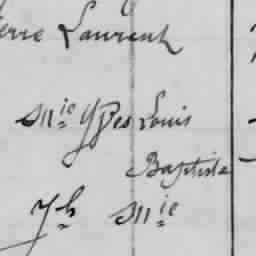 erre Laurent
S Mie Ypes Louis
Baptiste
Jh S Mie